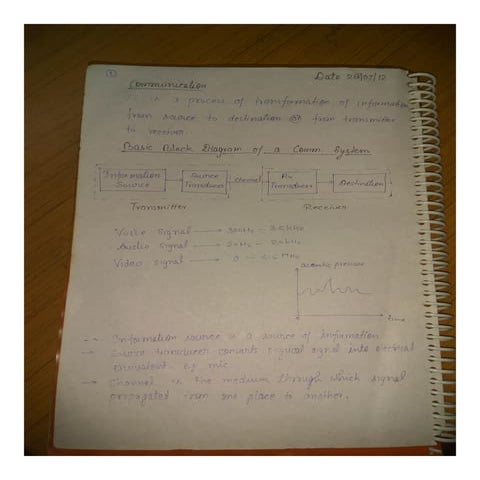 1
Date 28/07/12
Communication
It is a process of transformation of information
from source to destination or from transmitter
to receiver.
Basic Block Diagram of a Comm. System
Information Source
Source Transducer
channel
Transducer
Destination
Transmitter
Receiver
Voice Signal
Audio signal
Video signal
acoustic pressure
time
Information source is a source of information
Source transducer converts signal into electrical
equivalent eg mic
Channel is the medium through which signal
propagated from one place to another.